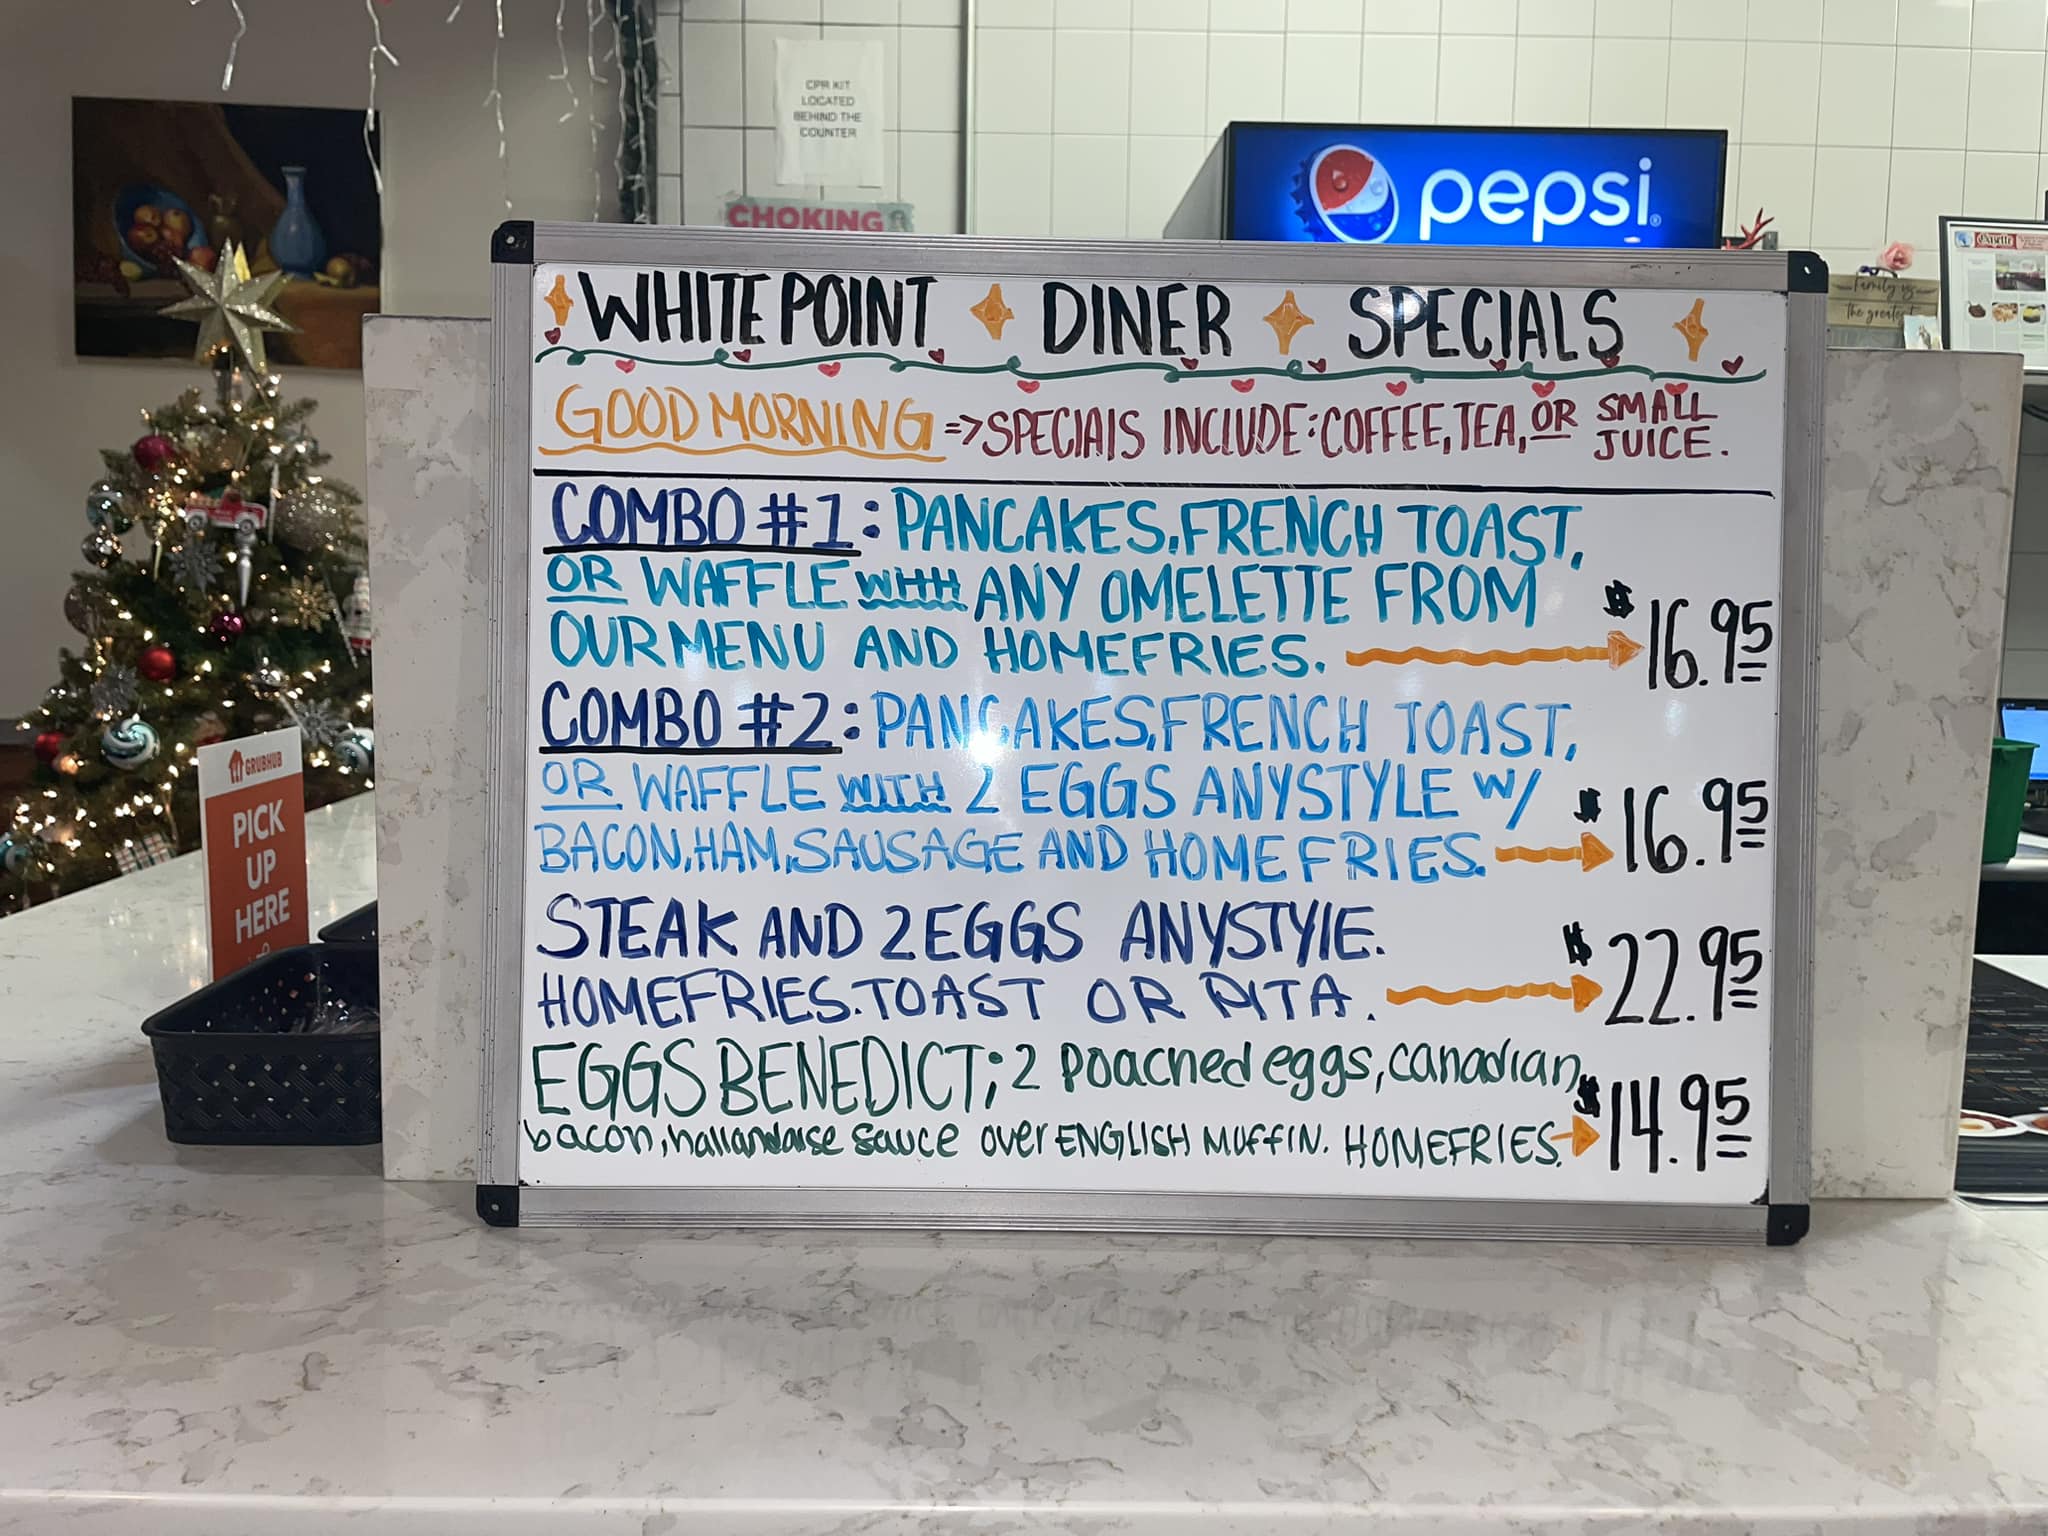 CPR KIT
LOCATED
BEHIND THE
COUNTER
CHOKING
pepsi
Family is
the greatest
Gazette
WHITEPOINT DINER SPECIALS
GOOD MORNING => SPECIALS INCLUDE: COFFEE, TEA, OR SMALL JUICE.
COMBO #1: PANCAKES, FRENCH TOAST,
OR WAFFLE WITH ANY OMELETTE FROM
OUR MENU AND HOMEFRIES. $16.95
COMBO #2: PANCAKES, FRENCH TOAST,
OR WAFFLE WITH 2 EGGS ANYSTYLE W/
BACON, HAM, SAUSAGE AND HOMEFRIES. $16.95
STEAK AND 2 EGGS ANYSTYlE.
HOMEFRIES. TOAST OR PITA. $22.95
EGGS BENEDICT; 2 Poached eggs, canadian
bacon, hallandaise sauce over ENGLISH MUFFIN. HOMEFRIES. $14.95
GRUBHUB
PICK
UP
HERE